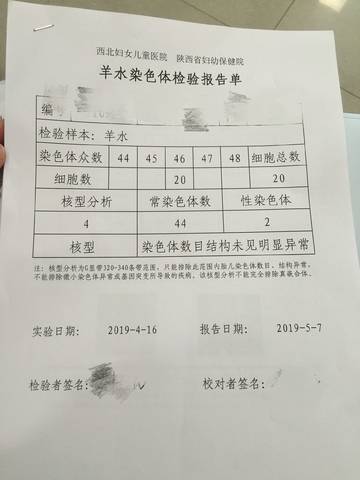 西北妇女儿童医院 陕西省妇幼保健院
羊水染色体检验报告单
编号
检验样本：羊水
染色体众数 44 45 46 47 48 细胞总数
细胞数 20 20
核型分析 常染色体数 性染色体
4 44 2
核型 染色体数目结构未见明显异常
注：核型分析为G显带320-340条带范围，只能排除此范围内胎儿染色体数目、结构异常，
不能排除微小染色体异常或基因突变所导致的疾病。该核型分析不能完全排除真嵌合体。
实验日期： 2019-4-16 报告日期： 2019-5-7
检验者签名： 校对者签名：